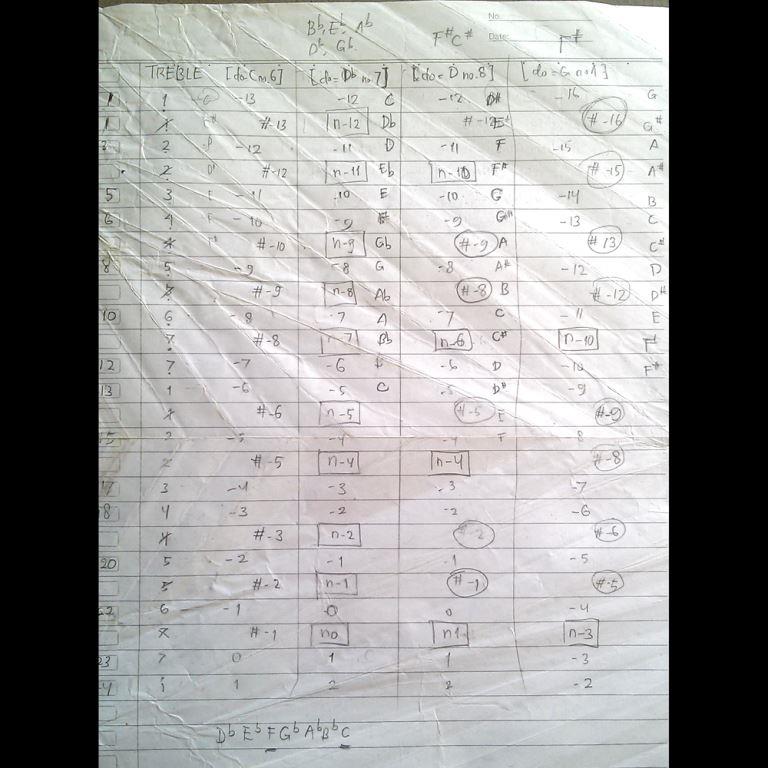 No.
Bb, Eb, Ab F# C# Date: F#
Db, Gb
TREBLE [do=C no.6] [do=Db no.7] [do=D no.8] [do=G no.1]
1 1 -13 -12 C -12 D# -16 G
1 #-13 n-12 Db #-12 #-16 G#
3 2 -12 -11 D -11 F -15 A
2 #-12 n-11 Eb n-10 F# #-15 A#
5 3 -11 -10 E -10 G -14 B
6 4 -10 -9 -9 G# -13 C
4 #-10 n-9 Gb #-9 A #13 C#
8 5 -9 -8 G -8 A# -12 D
5 #-9 n-8 Ab #-8 B #-12 D#
10 6 -8 -7 A -7 C -11 E
7 #-8 n-7 Bb n-6 C# n-10
12 7 -7 -6 B -6 D -10 F#
13 1 -6 -5 C -5 D# -9
1 #-6 n-5 #-5 E #-9
15 2 -5 -4 -4 F -8
2 #-5 n-4 n-4 #-8
17 3 -4 -3 -3 -7
18 4 -3 -2 -2 -6
4 #-3 n-2 #-2 #-6
20 5 -2 -1 -1 -5
5 #-2 n-1 #-1 #-5
22 6 -1 0 0 -4
7 #-1 n0 n1 n-3
23 7 0 1 1 -3
1 1 2 2 -2
Db Eb F Gb Ab Bb C